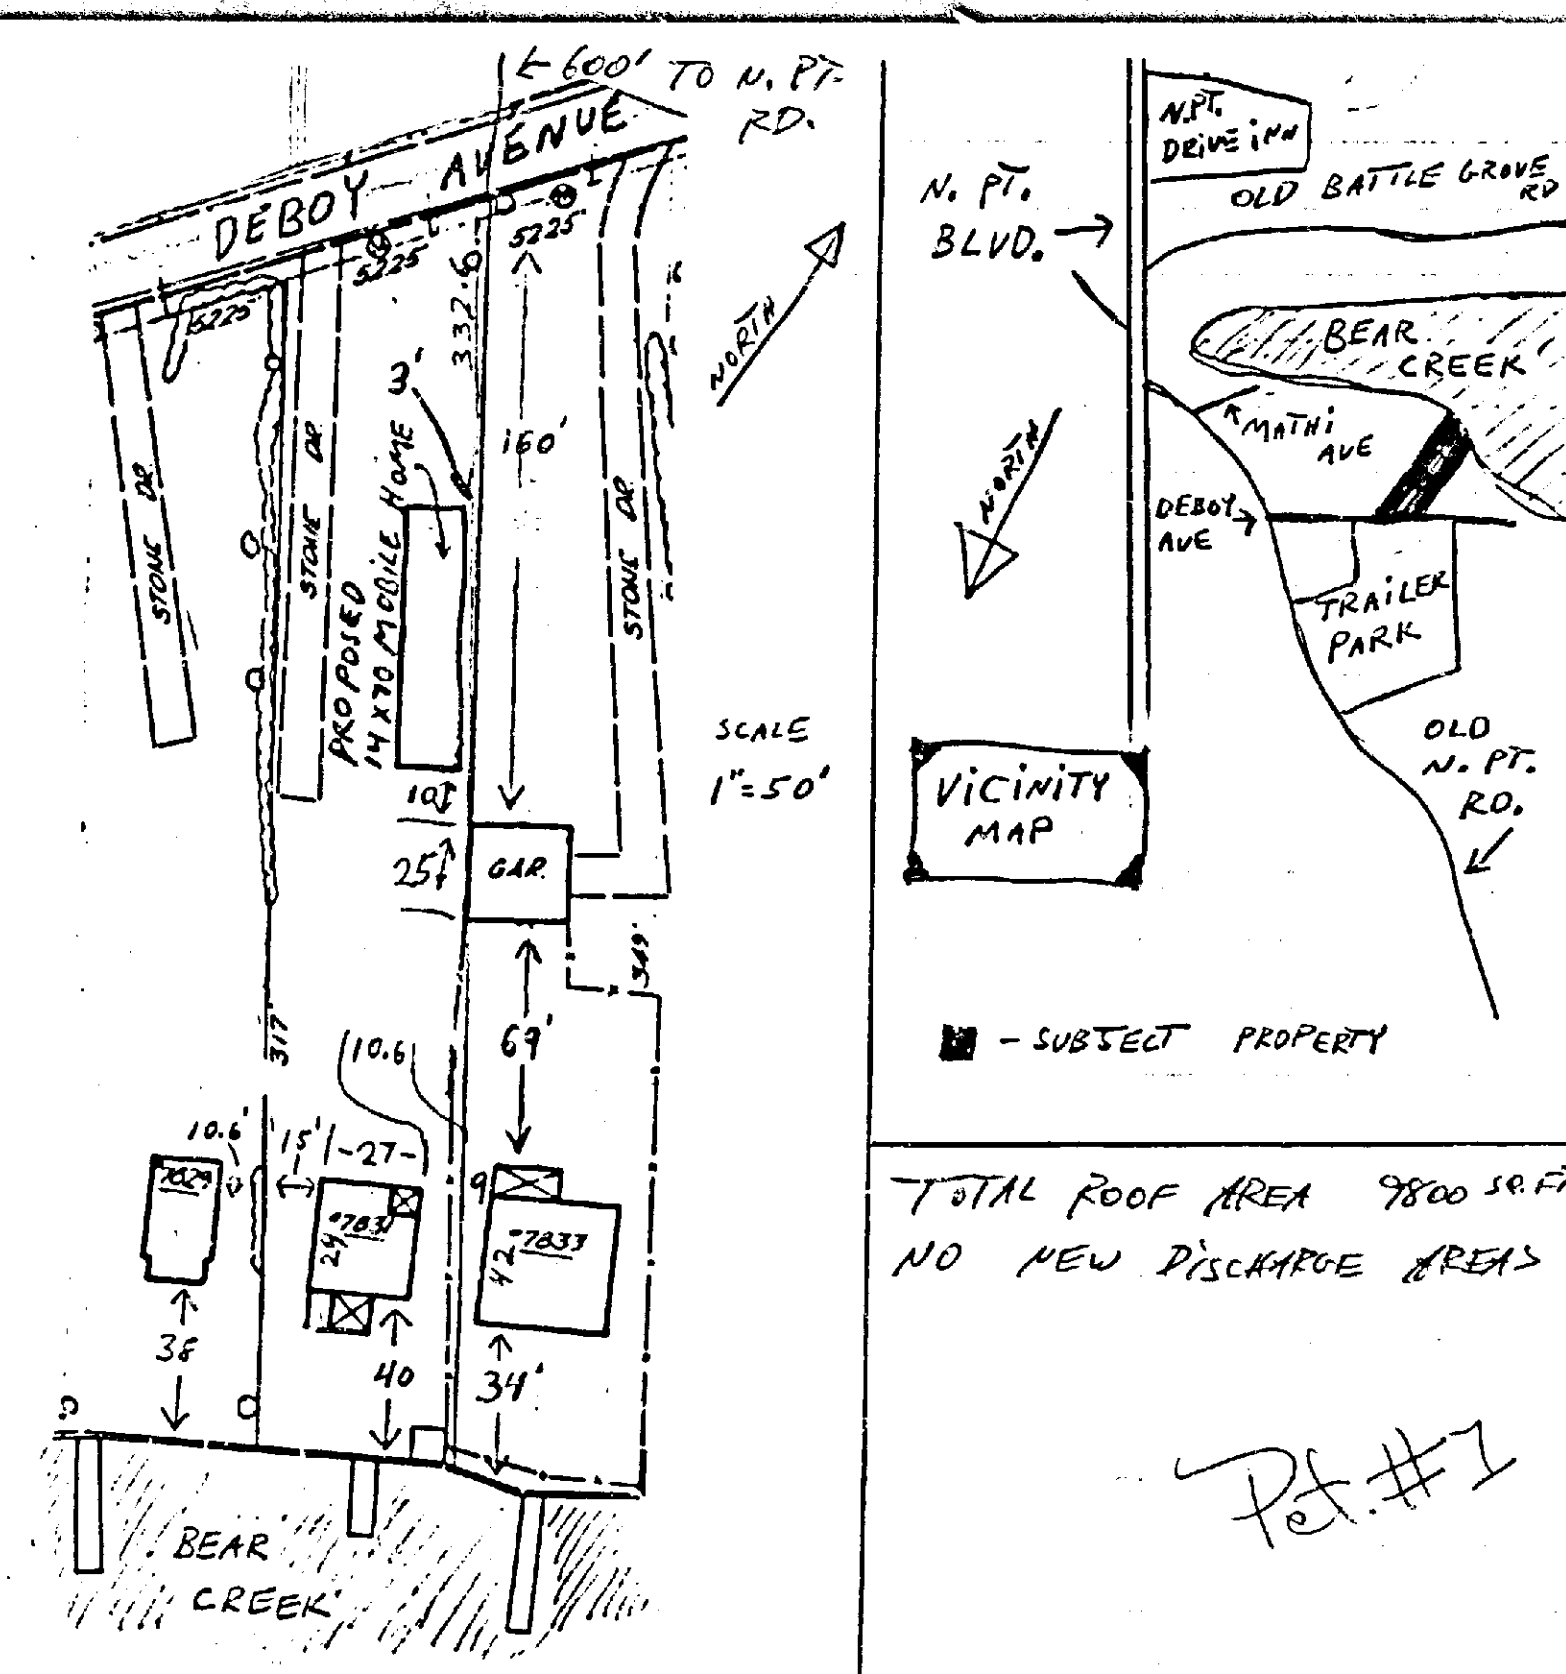 ← 600' TO N. PT.
RD.
DEBOY AVENUE
5225
5225
5225
332.6
3'
160'
NORTH
STONE DR.
STONE DR.
STONE DR.
PROPOSED
14 X 70 MOBILE HOME
SCALE
1"=50'
10
25
GAR.
349'
317'
69'
10.6
10.6'
15'
-27-
9
7829
7831
24
7833
42
38
40
34'
BEAR
CREEK
N.PT.
DRIVE INN
OLD BATTLE GROVE
RD
N. PT.
BLVD.
BEAR
CREEK
MATHI
AVE
NORTH
DEBOY
AVE
TRAILER
PARK
OLD
N. PT.
RD.
VICINITY
MAP
- SUBJECT PROPERTY
TOTAL ROOF AREA 9800 SQ. FT
NO NEW DISCHARGE AREAS
Pet. #1